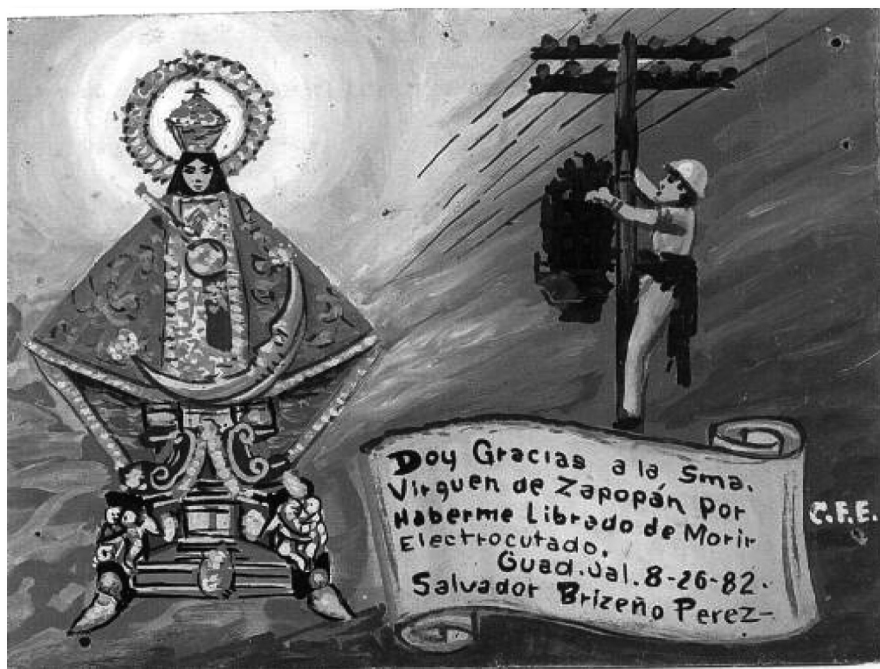 Doy Gracias a la Sma.
Virguen de Zapopán Por
Haberme Librado de Morir
Electrocutado.
Guad. Jal. 8-26-82.
Salvador Brizeño Perez-
C.F.E.